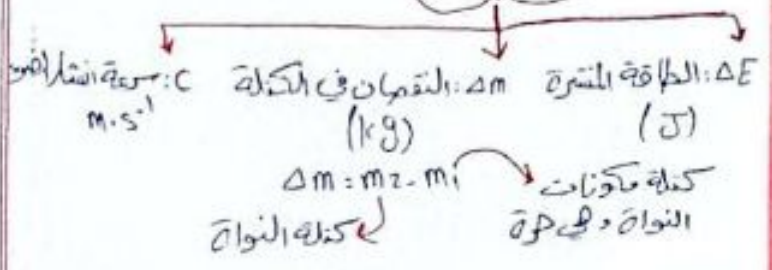 ΔE: الطاقة المنتشرة Δm: النقصان في الكتلة C: سرعة انتشار الضوء
(J) (kg) m.s⁻¹
Δm = m2 - m1 كتلة مكونات
النواة وهي حرة
كتلة النواة